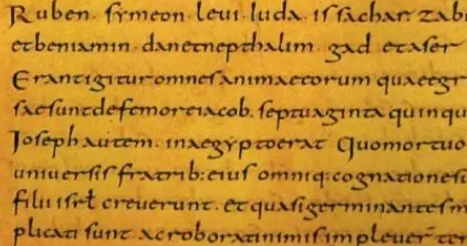 Ruben · symeon · levi · iuda · issachar · zabu
etbeniamin · danetnepthalim · gad etaser
Erantigituromnesanimaeeorum quaeegr
saesuntdefemoreiacob · septuaginta quinqu
Ioseph autem · inaegyptoerat Quomortuo
universis fratrib: eius omniq: cognationesi
filii isrł creverunt · et quasigerminantesm
plicati sunt · acroboratinimisimpleverter